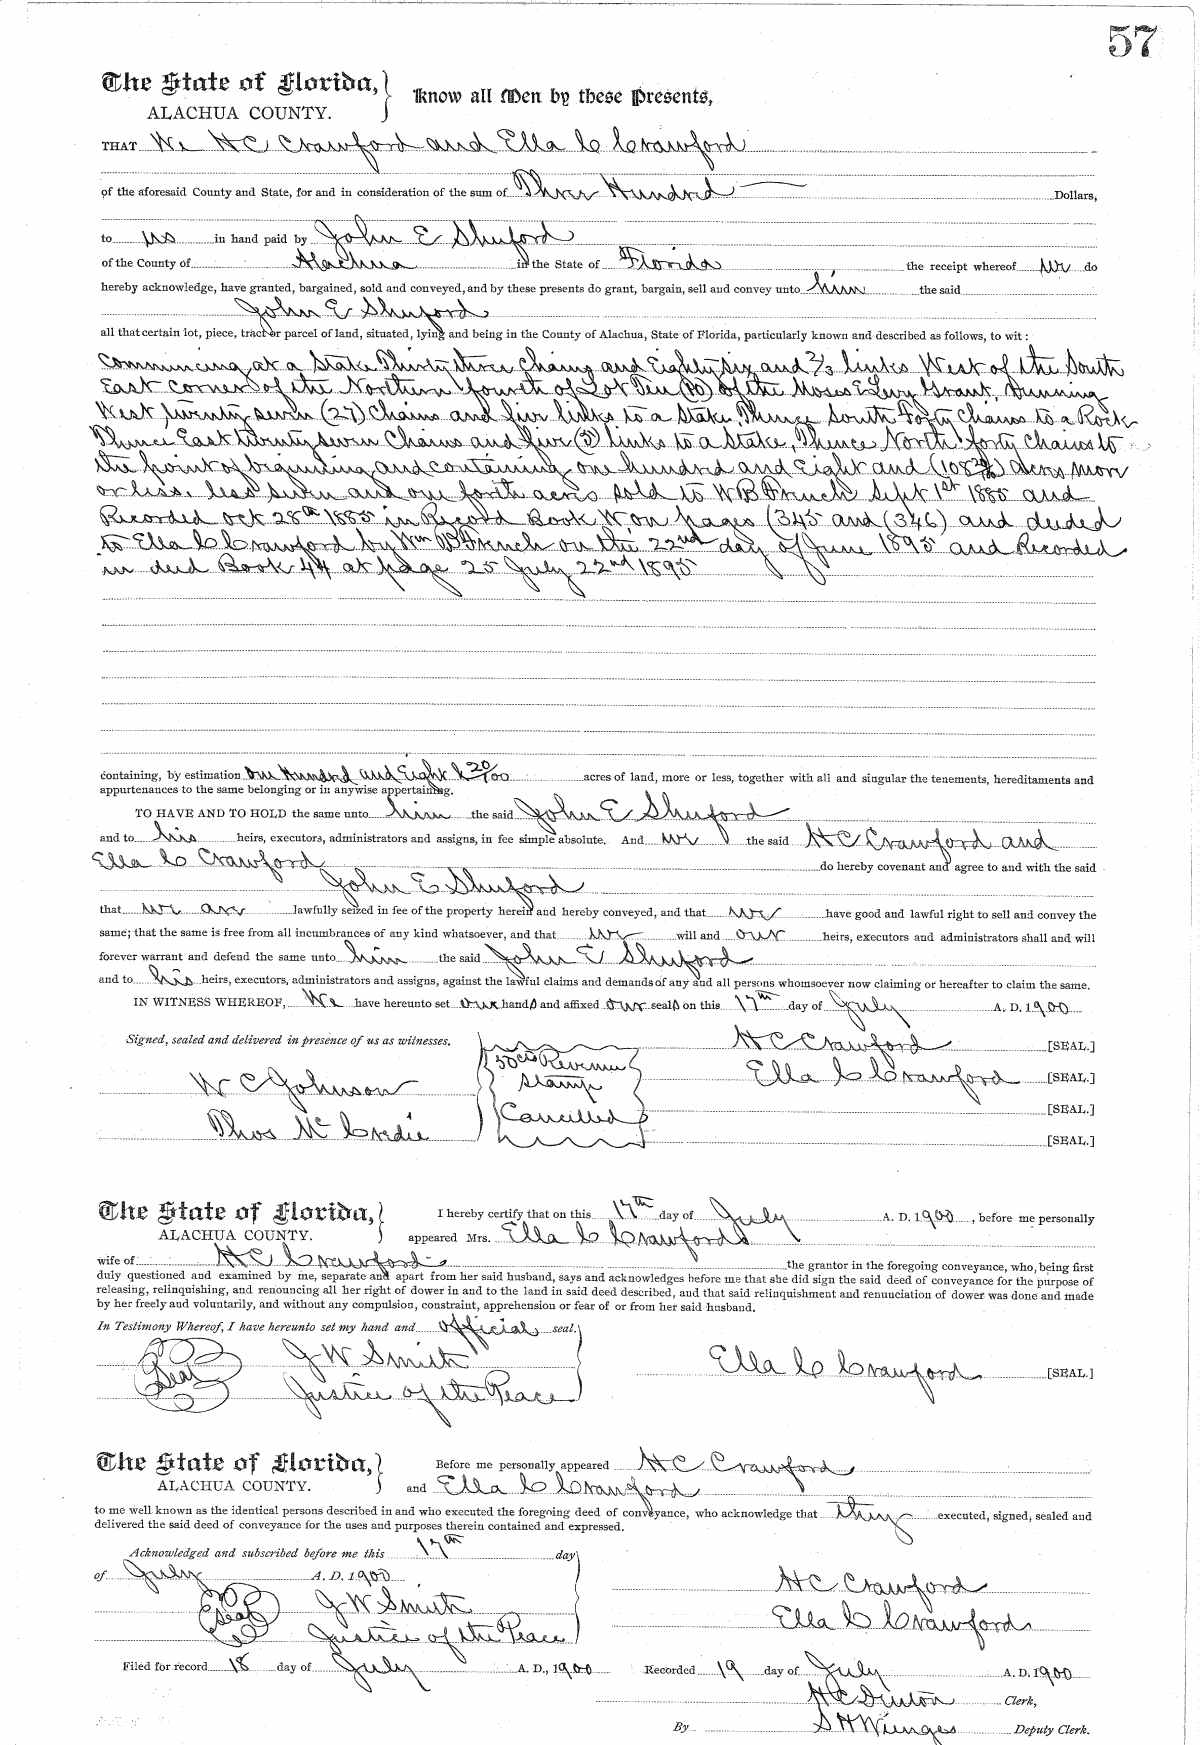 57
The State of Florida, } Know all Men by these Presents,
ALACHUA COUNTY.
THAT We H C Crawford and Ella C Crawford
of the aforesaid County and State, for and in consideration of the sum of Three Hundred Dollars,
to us in hand paid by John E Shuford
of the County of Alachua in the State of Florida, the receipt whereof we do
hereby acknowledge, have granted, bargained, sold and conveyed, and by these presents do grant, bargain, sell and convey unto him the said
John E Shuford
all that certain lot, piece, tract or parcel of land, situated, lying and being in the County of Alachua, State of Florida, particularly known and described as follows, to wit:
Commencing at a Stake Thirty three Chains and Eighty six and 2/3 links West of the South
East corner of the Northern fourth of Lot Ten (10) of the Moses E Levy Grant, Running
West twenty seven (27) Chains and five links to a Stake, Thence South Forty Chains to a Rock
Thence East twenty seven Chains and five (5) links to a Stake, Thence North forty Chains to
the point of beginning and containing one hundred and Eight and (108 acres more
or less. less seven and one forth acres sold to W B French Sept 1st 1885 and
Recorded Oct 28th 1885 in Record Book W on pages (345 and (346) and deeded
to Ella C Crawford by Wm B French on the 22nd day of June 1895 and Recorded
in deed Book 44 at page 25 July 22nd 1895
containing, by estimation One Hundred and Eight & 20/100 acres of land, more or less, together with all and singular the tenements, hereditaments and
appurtenances to the same belonging or in anywise appertaining.
TO HAVE AND TO HOLD the same unto him the said John E Shuford
and to his heirs, executors, administrators and assigns, in fee simple absolute. And we the said H C Crawford and
Ella C Crawford do hereby covenant and agree to and with the said
John E Shuford
that we are lawfully seized in fee of the property herein and hereby conveyed, and that we have good and lawful right to sell and convey the
same; that the same is free from all incumbrances of any kind whatsoever, and that we will and our heirs, executors and administrators shall and will
forever warrant and defend the same unto him the said John E Shuford
and to his heirs, executors, administrators and assigns, against the lawful claims and demands of any and all persons whomsoever now claiming or hereafter to claim the same.
IN WITNESS WHEREOF, We have hereunto set our hands and affixed our seals on this 17th day of July A. D. 1900
Signed, sealed and delivered in presence of us as witnesses.
H C Crawford [SEAL.]
50cts Revenue
Stamp
Cancelled
Ella C Crawford [SEAL.]
W C Johnson
[SEAL.]
Thos Mc Credie
[SEAL.]
The State of Florida, } I hereby certify that on this 17th day of July A. D. 1900, before me personally
ALACHUA COUNTY. appeared Mrs. Ella C Crawford
wife of H C Crawford the grantor in the foregoing conveyance, who, being first
duly questioned and examined by me, separate and apart from her said husband, says and acknowledges before me that she did sign the said deed of conveyance for the purpose of
releasing, relinquishing, and renouncing all her right of dower in and to the land in said deed described, and that said relinquishment and renunciation of dower was done and made
by her freely and voluntarily, and without any compulsion, constraint, apprehension or fear of or from her said husband.
In Testimony Whereof, I have hereunto set my hand and official seal.
Seal J W Smith
Ella C Crawford [SEAL.]
Justice of the Peace
The State of Florida, } Before me personally appeared H C Crawford
ALACHUA COUNTY. and Ella C Crawford
to me well known as the identical persons described in and who executed the foregoing deed of conveyance, who acknowledge that they executed, signed, sealed and
delivered the said deed of conveyance for the uses and purposes therein contained and expressed.
Acknowledged and subscribed before me this 17th day
of July A. D. 1900
H C Crawford
Seal J W Smith
Ella C Crawford
Justice of the Peace
Filed for record 18 day of July A. D., 1900 Recorded 19 day of July A. D. 1900
H C Denton Clerk,
By S H Wienges Deputy Clerk.